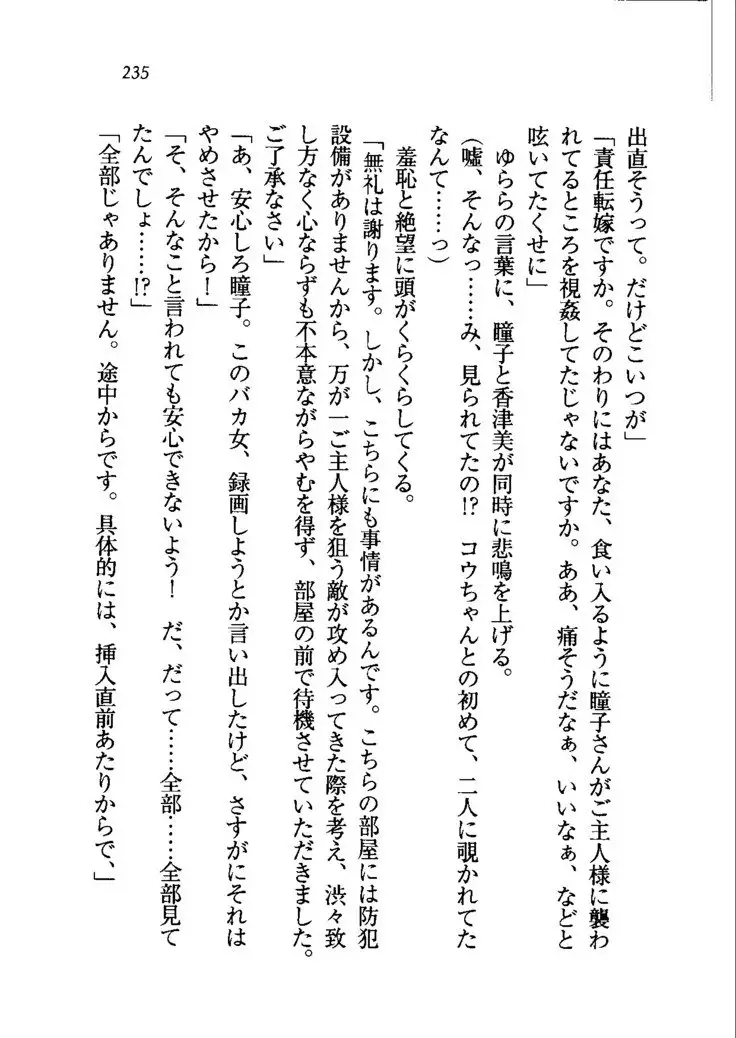 235
出直そうって。だけどこいつが」
「責任転嫁ですか。そのわりにはあなた、食い入るように瞳子さんがご主人様に襲わ
れてるところを視姦してたじゃないですか。ああ、痛そうだなぁ、いいなぁ、などと
呟いてたくせに」
ゆららの言葉に、瞳子と香津美が同時に悲鳴を上げる。
(嘘、そんなっ……み、見られてたの!? コウちゃんとの初めて、二人に覗かれてた
なんて……っ)
羞恥と絶望に頭がくらくらしてくる。
「無礼は謝ります。しかし、こちらにも事情があるんです。こちらの部屋には防犯
設備がありませんから、万が一ご主人様を狙う敵が攻め入ってきた際を考え、渋々致
し方なく心ならずも不本意ながらやむを得ず、部屋の前で待機させていただきました。
ご了承なさい」
「あ、安心しろ瞳子。このバカ女、録画しようとか言い出したけど、さすがにそれは
やめさせたから!」
「そ、そんなこと言われても安心できないよう! だ、だって……全部……全部見て
たんでしょ……!?」
「全部じゃありません。途中からです。具体的には、挿入直前あたりからで、」